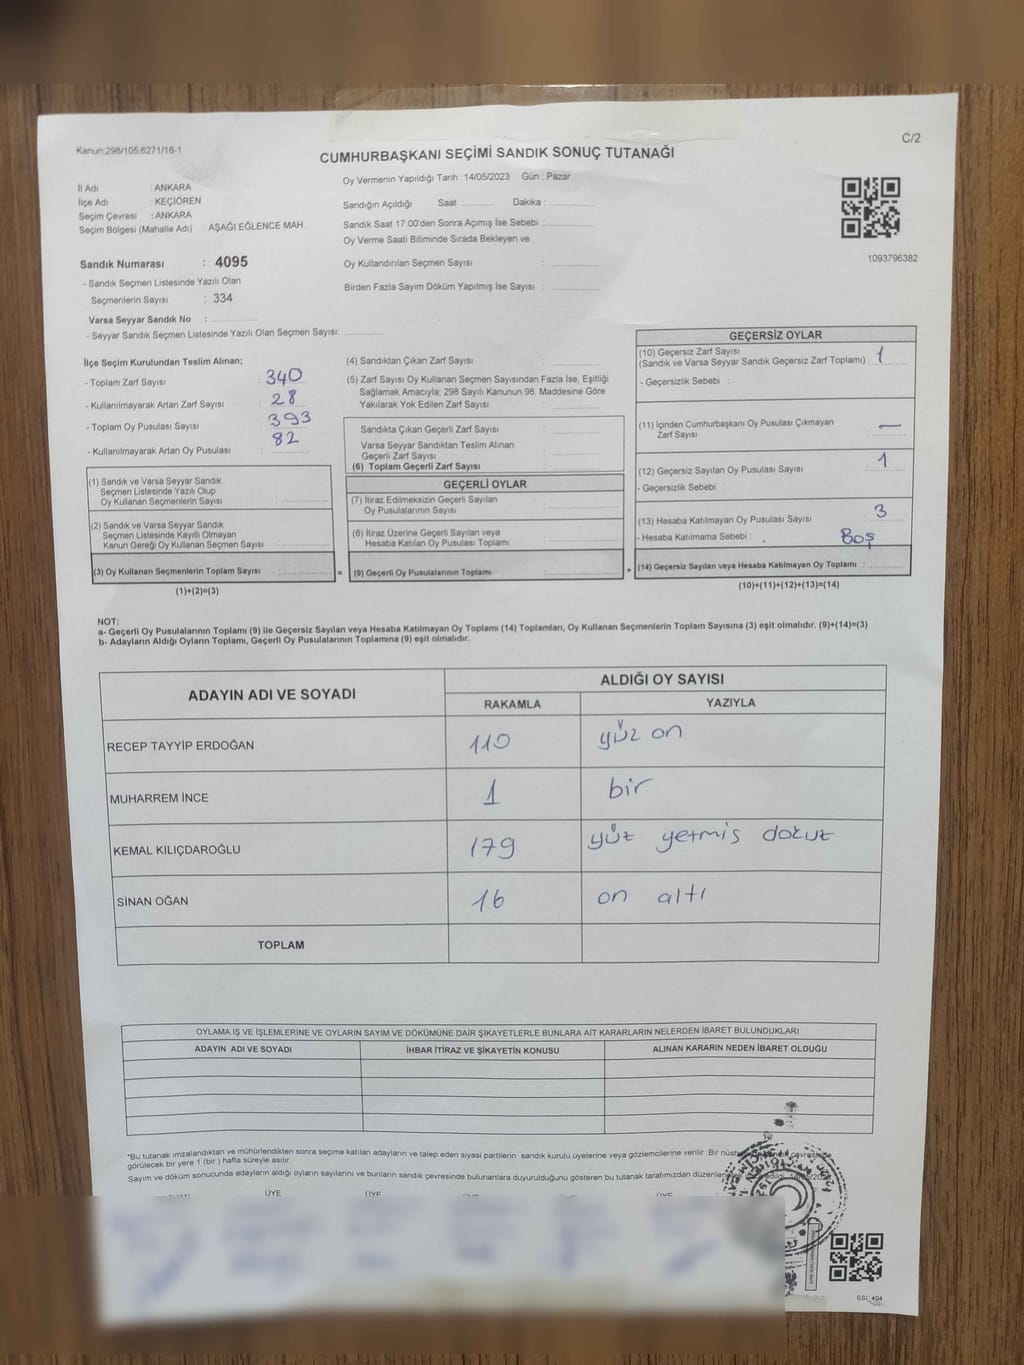 Kanun;298/105;6271/16-1
C/2
CUMHURBAŞKANI SEÇİMİ SANDIK SONUÇ TUTANAĞI
İl Adı : ANKARA
İlçe Adı : KEÇİÖREN
Seçim Çevresi : ANKARA
Seçim Bölgesi (Mahalle Adı) : AŞAĞI EĞLENCE MAH.
Oy Vermenin Yapıldığı Tarih :14/05/2023 Gün : Pazar
Sandığın Açıldığı Saat : Dakika :
Sandık Saat 17:00'den Sonra Açımış İse Sebebi :
Oy Verme Saati Bitiminde Sırada Bekleyen ve
Oy Kullandırılan Seçmen Sayısı :
Birden Fazla Sayım Döküm Yapılmış İse Sayısı :
1093796382
Sandık Numarası : 4095
- Sandık Seçmen Listesinde Yazılı Olan
Seçmenlerin Sayısı : 334
Varsa Seyyar Sandık No :
- Seyyar Sandık Seçmen Listesinde Yazılı Olan Seçmen Sayısı:
İlçe Seçim Kurulundan Teslim Alınan;
- Toplam Zarf Sayısı : 340
- Kullanılmayarak Artan Zarf Sayısı : 28
- Toplam Oy Pusulası Sayısı : 393
- Kullanılmayarak Artan Oy Pusulası : 82
(1) Sandık ve Varsa Seyyar Sandık
Seçmen Listesinde Yazılı Olup
Oy Kullanan Seçmenlerin Sayısı :
(2) Sandık ve Varsa Seyyar Sandık
Seçmen Listesinde Kayıtlı Olmayan
Kanun Gereği Oy Kullanan Seçmen Sayısı :
(3) Oy Kullanan Seçmenlerin Toplam Sayısı :
(1)+(2)=(3)
=
(4) Sandıktan Çıkan Zarf Sayısı :
(5) Zarf Sayısı Oy Kullanan Seçmen Sayısından Fazla İse, Eşitliği
Sağlamak Amacıyla; 298 Sayılı Kanunun 98. Maddesine Göre
Yakılarak Yok Edilen Zarf Sayısı :
Sandıkta Çıkan Geçerli Zarf Sayısı :
Varsa Seyyar Sandıktan Teslim Alınan
Geçerli Zarf Sayısı :
(6) Toplam Geçerli Zarf Sayısı :
GEÇERLİ OYLAR
(7) İtiraz Edilmeksizin Geçerli Sayılan
Oy Pusulalarının Sayısı :
(8) İtiraz Üzerine Geçerli Sayılan veya
Hesaba Katılan Oy Pusulası Toplamı :
(9) Geçerli Oy Pusulalarının Toplamı :
+
GEÇERSİZ OYLAR
(10) Geçersiz Zarf Sayısı
(Sandık ve Varsa Seyyar Sandık Geçersiz Zarf Toplamı) : 1
- Geçersizlik Sebebi :
(11) İçinden Cumhurbaşkanı Oy Pusulası Çıkmayan
Zarf Sayısı : —
(12) Geçersiz Sayılan Oy Pusulası Sayısı : 1
- Geçersizlik Sebebi :
(13) Hesaba Katılmayan Oy Pusulası Sayısı : 3
- Hesaba Katılmama Sebebi : Boş
(14) Geçersiz Sayılan veya Hesaba Katılmayan Oy Toplamı :
(10)+(11)+(12)+(13)=(14)
NOT:
a- Geçerli Oy Pusulalarının Toplamı (9) ile Geçersiz Sayılan veya Hesaba Katılmayan Oy Toplamı (14) Toplamları, Oy Kullanan Seçmenlerin Toplam Sayısına (3) eşit olmalıdır. (9)+(14)=(3)
b- Adayların Aldığı Oyların Toplamı, Geçerli Oy Pusulalarının Toplamına (9) eşit olmalıdır.
ADAYIN ADI VE SOYADI
ALDIĞI OY SAYISI
RAKAMLA YAZIYLA
RECEP TAYYİP ERDOĞAN 110 yüz on
MUHARREM İNCE 1 bir
KEMAL KILIÇDAROĞLU 179 yüz yetmiş dokuz
SİNAN OĞAN 16 on altı
TOPLAM
OYLAMA İŞ VE İŞLEMLERİNE VE OYLARIN SAYIM VE DÖKÜMÜNE DAİR ŞİKAYETLERLE BUNLARA AİT KARARLARIN NELERDEN İBARET BULUNDUKLARI
ADAYIN ADI VE SOYADI İHBAR İTİRAZ VE ŞİKAYETİN KONUSU ALINAN KARARIN NEDEN İBARET OLDUĞU
*Bu tutanak imzalandıktan ve mühürlendikten sonra seçime katılan adayların ve talep eden siyasi partilerin sandık kurulu üyelerine veya gözlemcilerine verilir. Bir çevresinde
görülecek bir yere 1 (bir ) hafta süreyle asılır.
Sayım ve döküm sonucunda adayların aldığı oyların sayılarını ve bunların sandık çevresinde bulunanlara duyurulduğunu gösteren bu tutanak tarafımızdan
ÜYE ÜYE
SSİ_404